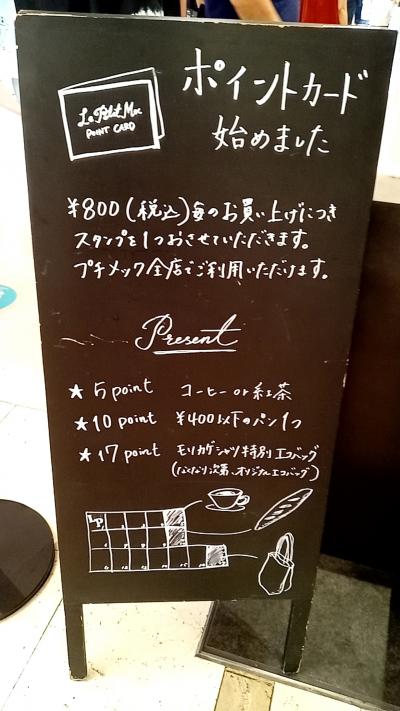 ポイントカード
始めました
Le Petit Mec
POINT CARD
¥800(税込)毎のお買い上げにつき
スタンプを1つおさせていただきます。
プチメック全店でご利用いただけます。
Present
★ 5point コーヒー or 紅茶
★ 10 point ¥400以下のパン1つ
★ 17 point モリカゲシャツ特別エコバッグ
(なくなり次第、オリジナルエコバッグ)
LP